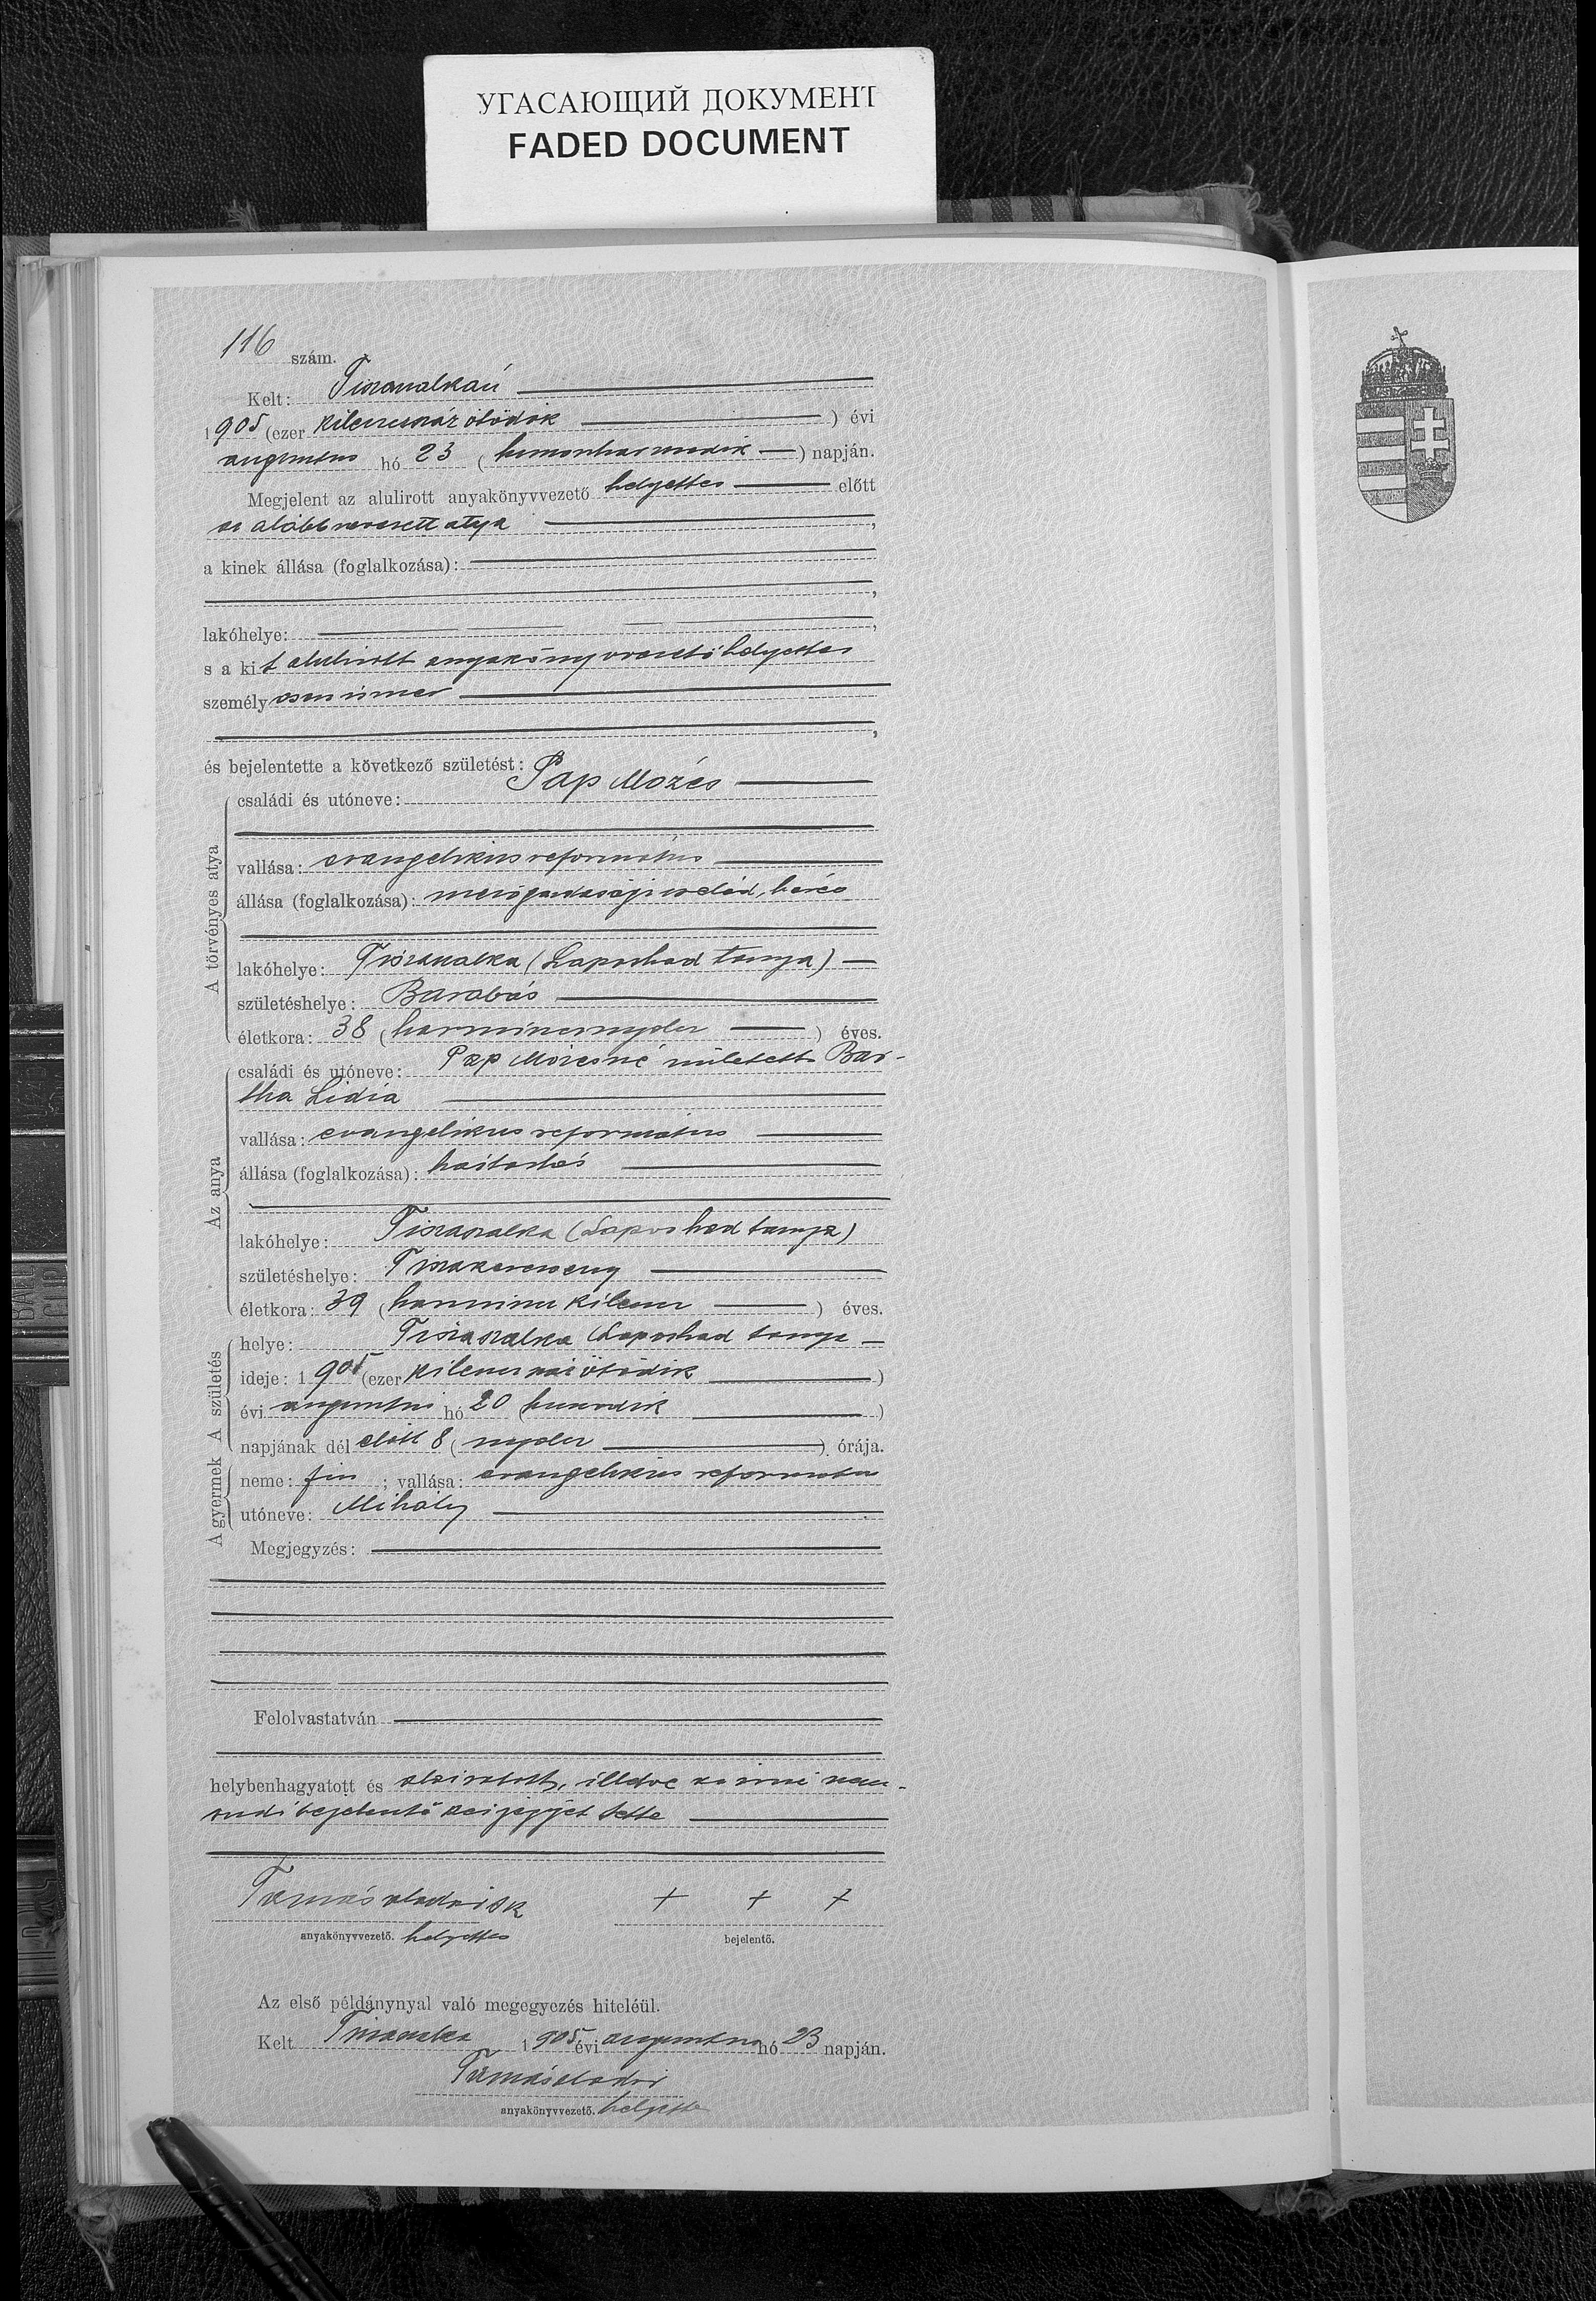 УГАСАЮЩИЙ ДОКУМЕНТ
FADED DOCUMENT
116 szám.
Kelt: Tiszaszalkán
1905 (ezer kilencszáz ötödik) évi
augusztus hó 23 (huszonharmadik) napján.
Megjelent az alulirott anyakönyvvezető helyettes előtt
az alább nevezett atya,
a kinek állása (foglalkozása):
,
lakóhelye: ,
s a kit alulirott anyakönyvvezető helyettes
személyesen ismer
,
és bejelentette a következő születést:
A törvényes atya
családi és utóneve: Pap Mózes
vallása: evangelikus református
állása (foglalkozása): mezőgazdasági cseléd, béres
lakóhelye: Tiszaszalka (Laposhad tanya)
születéshelye: Barabás
életkora: 38 (harmincnyolc) éves.
Az anya
családi és utóneve: Pap Mózesné született Bar-
tha Lidia
vallása: evangelikus református
állása (foglalkozása): háztartás
lakóhelye: Tiszaszalka (Laposhad tanya)
születéshelye: Tiszakerecseny
életkora: 39 (harminc kilenc) éves.
A születés
helye: Tiszaszalka (Laposhad tanya
ideje: 1905 (ezer kilencszáz ötödik)
évi augusztus hó 20 (huszadik)
napjának dél előtt 8 (nyolc) órája.
A gyermek
neme: fiu; vallása: evangelikus református
utóneve: Mihály
Megjegyzés:
Felolvastatván
helybenhagyatott és aláiratott, illetve az irni nem
tudó bejelentő kézjegyét tette
Tamás Aladár sk
+ + +
anyakönyvvezető. helyettes
bejelentő.
Az első példánynyal való megegyezés hiteléül.
Kelt Tiszaszalka 1905 évi augusztus hó 23 napján.
Tamás Aladár
anyakönyvvezető. helyettes